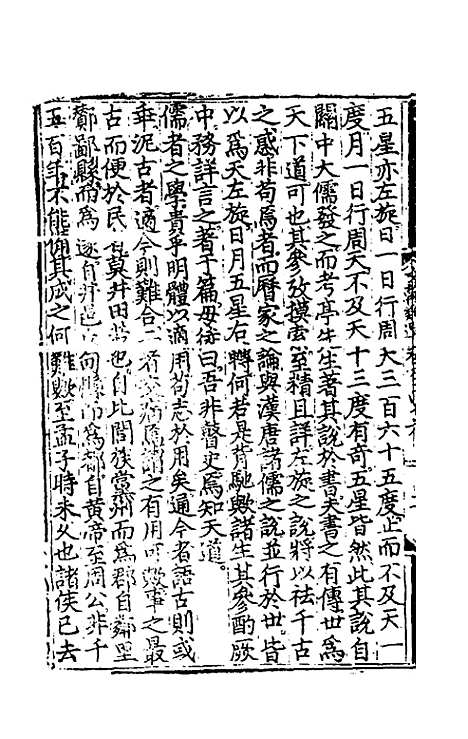 五星亦左旋日一日行周天三百六十五度止而不及天一
度月一日行周天不及天十三度有奇五星皆然此其說自
關中大儒發之而考亭先生著其說於書夫書之有傳世爲
天下道可也其參攷撲索至精且詳左旋之說將以祛千古
之惑非苟爲者而曆家之論與漢唐諸儒之說並行於世皆
以爲天左旋日月五星右轉何若是背馳歟諸生其參酌厥
中務詳言之著于篇毋徒曰吾非瞽史焉知天道
儒者之學貴乎明體以適用苟志於用矣通今者語古則或
乖泥古者適今則難合二者交病焉謂之有用可歟事之最
古而便於民者莫井田也自比閭族黨州而爲郡自鄰里
鄼鄙縣而爲遂自井邑 向縣而爲都自黃帝至周公非千
五百年不能備其成之何難歟至孟子時未久也諸侯已去